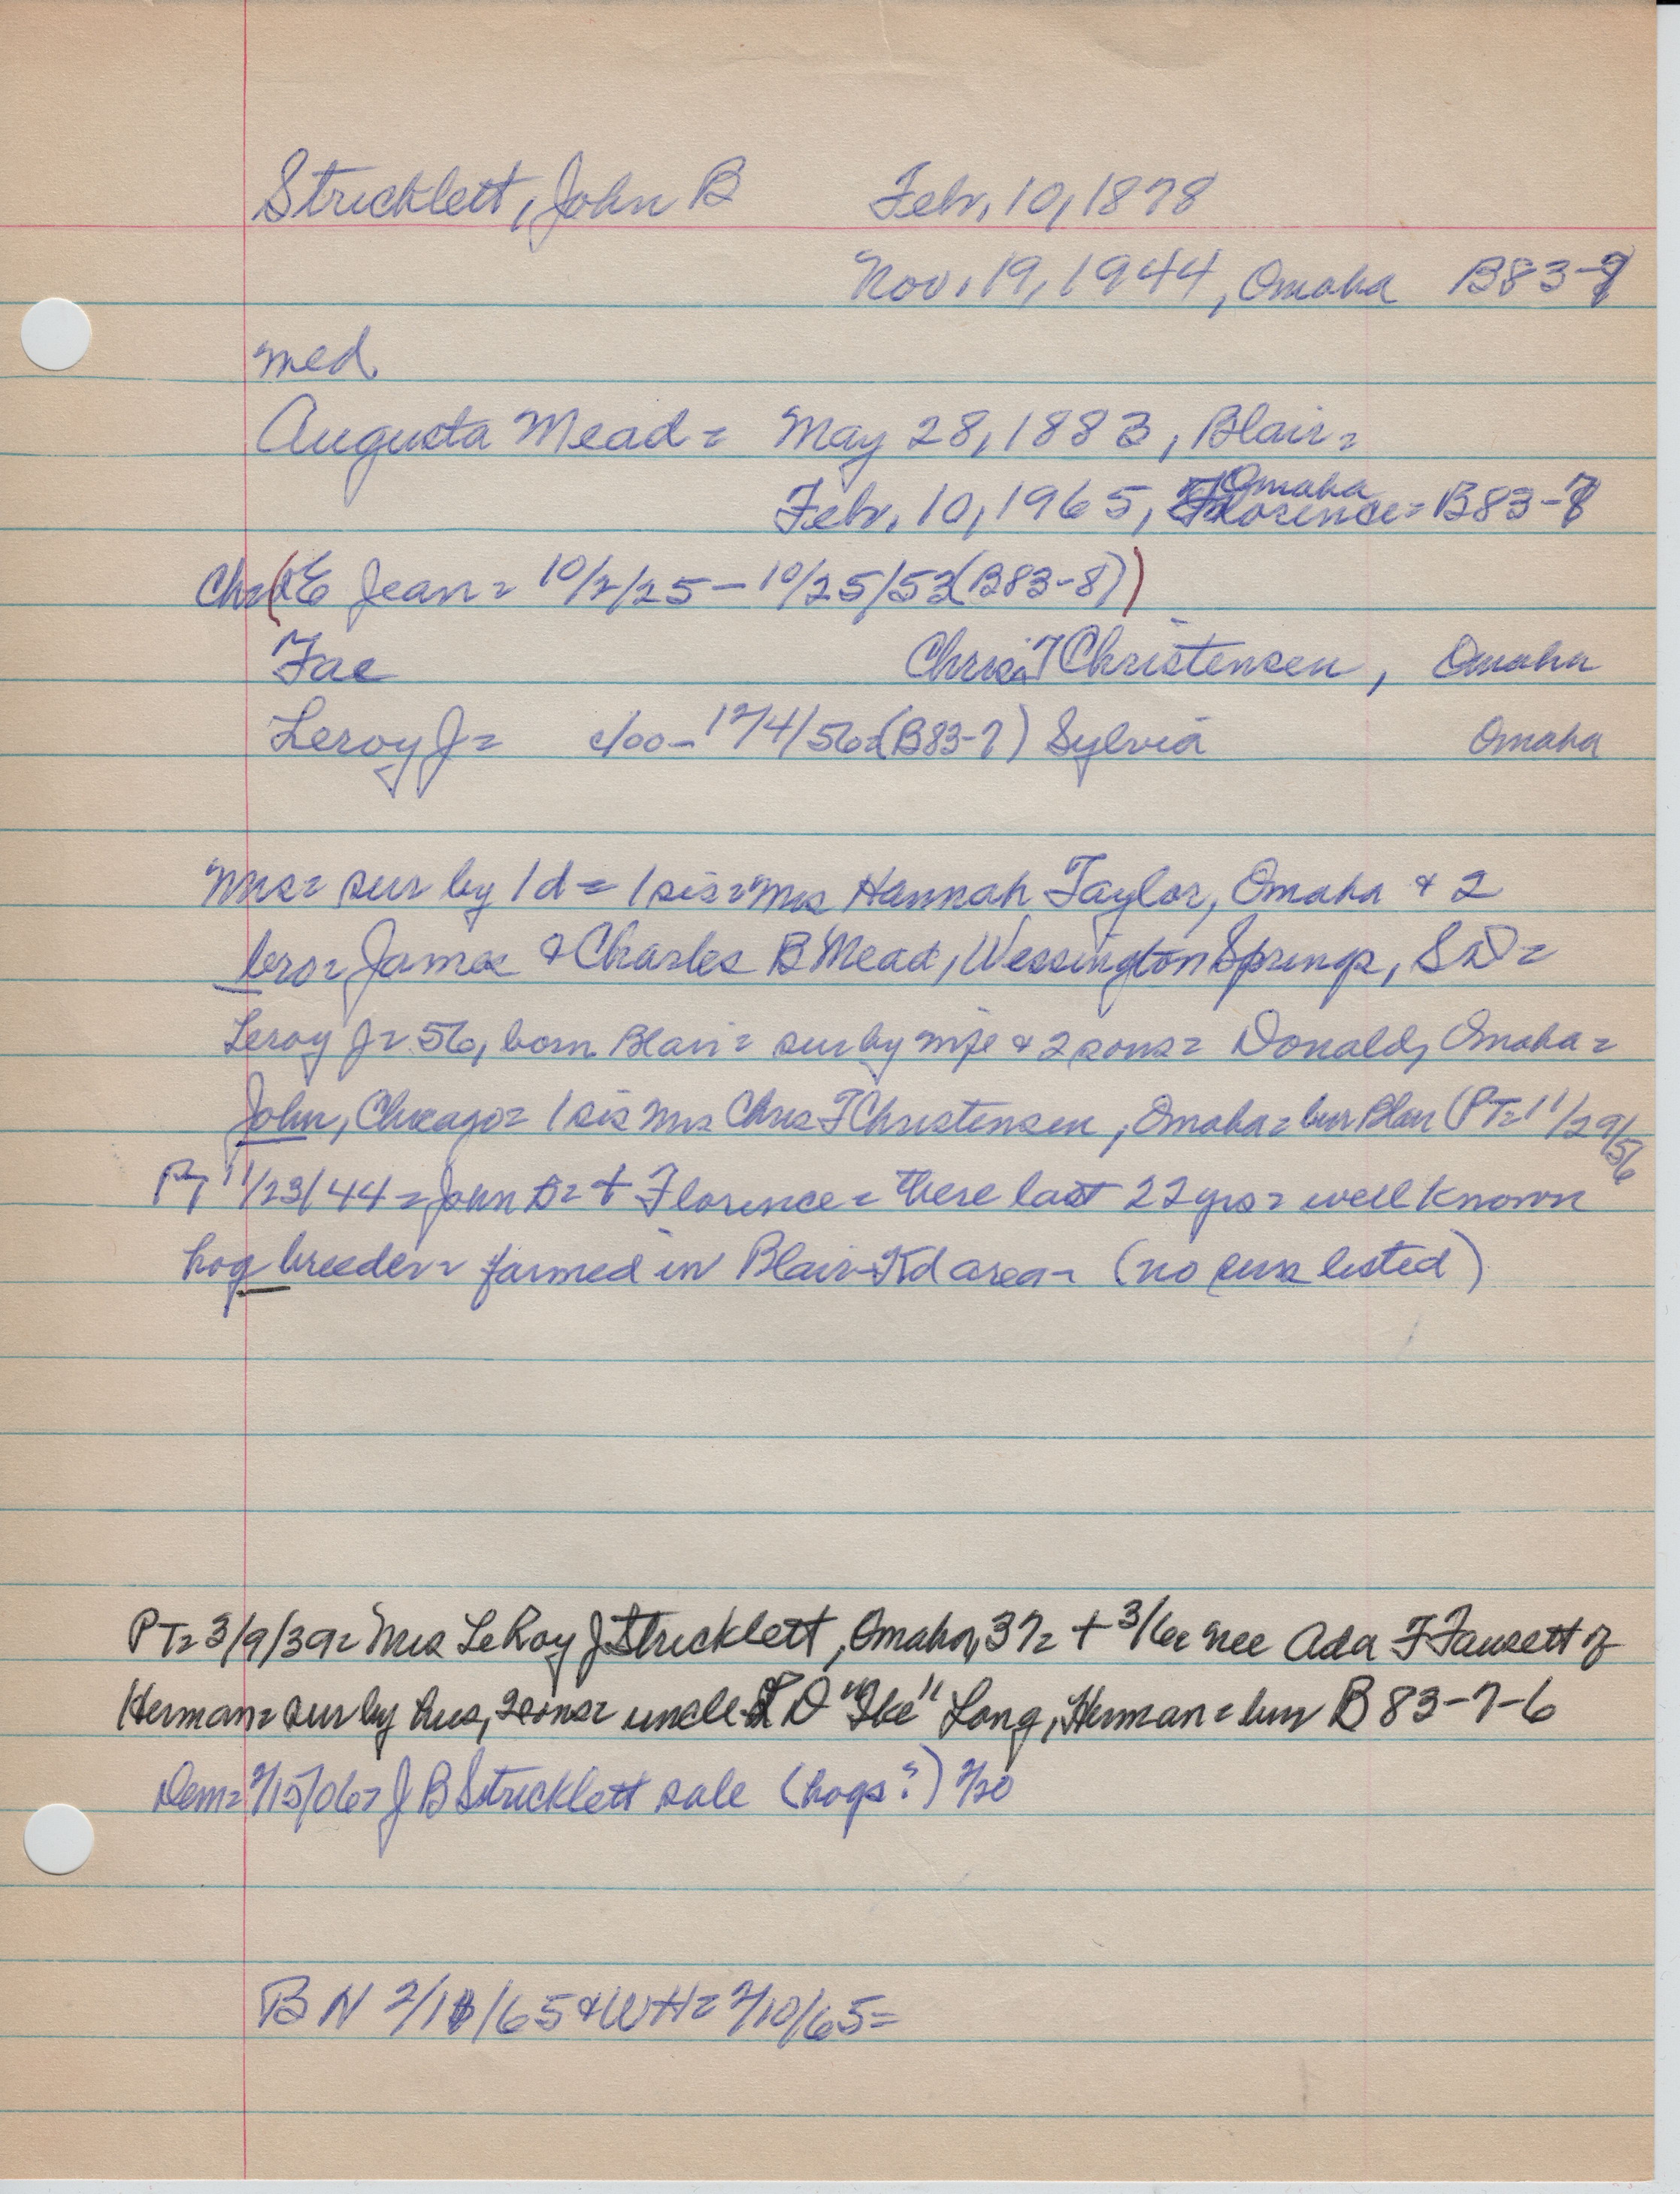 Stricklett, John B Feb, 10, 1878
Nov. 19, 1944, Omaha B83-
med
Augusta Mead = May 28, 1883, Blair =
Feb, 10, 1965, Florence = B83-
Omaha
Ch= (E Jean = 10/2/25 - 10/25/53 (B83-8))
Fae Chris T Christensen, Omaha
Leroy J = c/00 - 12/4/56 = (B83-7) Sylvia Omaha
Mrs = sur by 1 d = 1 sis = Mrs Hannah Taylor, Omaha & 2
bro = James & Charles B Mead, Wessington Springs, SD =
Leroy J = 56, born Blair = sur by wife & 2 sons = Donald, Omaha =
John, Chicago = 1 sis Mrs Chris T Christensen, Omaha = bur Blair (PT = 11/29/56
PT 11/23/44 = John B = + Florence = there last 22 yrs = well known
hog breeder = farmed in Blair-Kd area - (no surs listed)
PT = 3/9/39 = Mrs LeRoy J Stricklett, Omaha, 37 = + 3/6 = nee Ada F Fausett of
Herman = sur by hus, 2 sons = uncle D "Ike" Long, Herman = bur B 83-7-6
Dem = 2/15/06 = J B Stricklett sale (hogs?) 2/20
B N 2/1 /65 & WH = 2/10/65 =